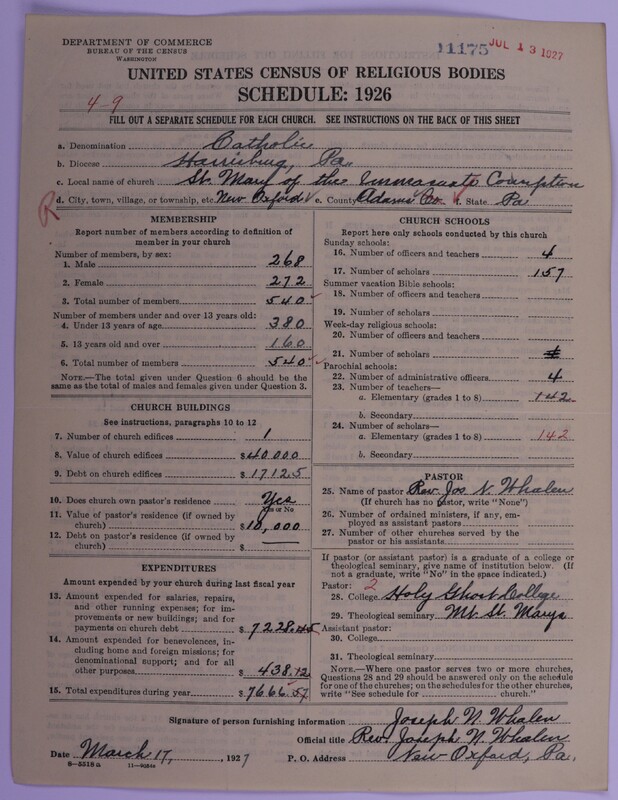 DEPARTMENT OF COMMERCE
BUREAU OF THE CENSUS
WASHINGTON
11175 JUL 13 1927
UNITED STATES CENSUS OF RELIGIOUS BODIES
SCHEDULE: 1926
4-9
FILL OUT A SEPARATE SCHEDULE FOR EACH CHURCH. SEE INSTRUCTIONS ON THE BACK OF THIS SHEET
a. Denomination Catholic
b. Diocese Harrisburg, Pa.
c. Local name of church St. Mary of the Immaculate Conception
R
d. City, town, village, or township, etc. New Oxford e. County Adams Co. f. State Pa
MEMBERSHIP
Report number of members according to definition of member in your church
Number of members, by sex:
1. Male 268
2. Female 272
3. Total number of members 540
Number of members under and over 13 years old:
4. Under 13 years of age 380
5. 13 years old and over 160
6. Total number of members 540
NOTE.—The total given under Question 6 should be the
same as the total of males and females given under Question 3.
CHURCH BUILDINGS
See instructions, paragraphs 10 to 12
7. Number of church edifices 1
8. Value of church edifices $40000
9. Debt on church edifices $1712.5
10. Does church own pastor's residence Yes
Yes or No
11. Value of pastor's residence (if owned by
church) $10,000
12. Debt on pastor's residence (if owned by
church) $
EXPENDITURES
Amount expended by your church during last fiscal year
13. Amount expended for salaries, repairs,
and other running expenses; for im-
provements or new buildings; and for
payments on church debt $7228.45
14. Amount expended for benevolences, in-
cluding home and foreign missions; for
denominational support; and for all
other purposes $438.12
15. Total expenditures during year $7666.57
CHURCH SCHOOLS
Report here only schools conducted by this church
Sunday schools:
16. Number of officers and teachers 4
17. Number of scholars 157
Summer vacation Bible schools:
18. Number of officers and teachers
19. Number of scholars
Week-day religious schools:
20. Number of officers and teachers
21. Number of scholars
Parochial schools:
22. Number of administrative officers 4
23. Number of teachers—
a. Elementary (grades 1 to 8) 142
b. Secondary
24. Number of scholars—
a. Elementary (grades 1 to 8) 142
b. Secondary
PASTOR
25. Name of pastor Rev. Jos N. Whalen
(If church has no pastor, write "None")
26. Number of ordained ministers, if any, em-
ployed as assistant pastors
27. Number of other churches served by the
pastor or his assistants
If pastor (or assistant pastor) is a graduate of a college or
theological seminary, give name of institution below. (If
not a graduate, write "No" in the space indicated.)
Pastor: 2
28. College Holy Ghost College
29. Theological seminary Mt. St. Marys
Assistant pastor:
30. College
31. Theological seminary
NOTE.—Where one pastor serves two or more churches,
Questions 28 and 29 should be answered only on the schedule
for one of the churches; on the schedules for the other churches,
write "See schedule for church."
Signature of person furnishing information Joseph N. Whalen
Official title Rev. Joseph N. Whalen
Date March 17, 1927 P. O. Address New Oxford, Pa.